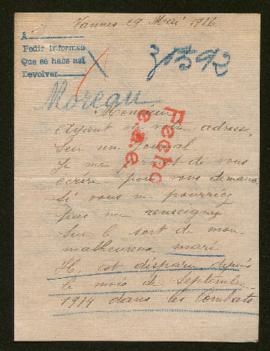 Vannes 29 Mai 1916
A
Pedir informes
Que se hace así
Devolver
31592
Moreau
Fecho
este
Monsieur
Ayant vu adress
sur un journal
Je me de vous
écrire pour vous demander
si vous ne pourriez
me renseigner
sur le sort de mon
malheureux mari
Il est disparu depuis
le mois de Septembre
1914 dans les Combats